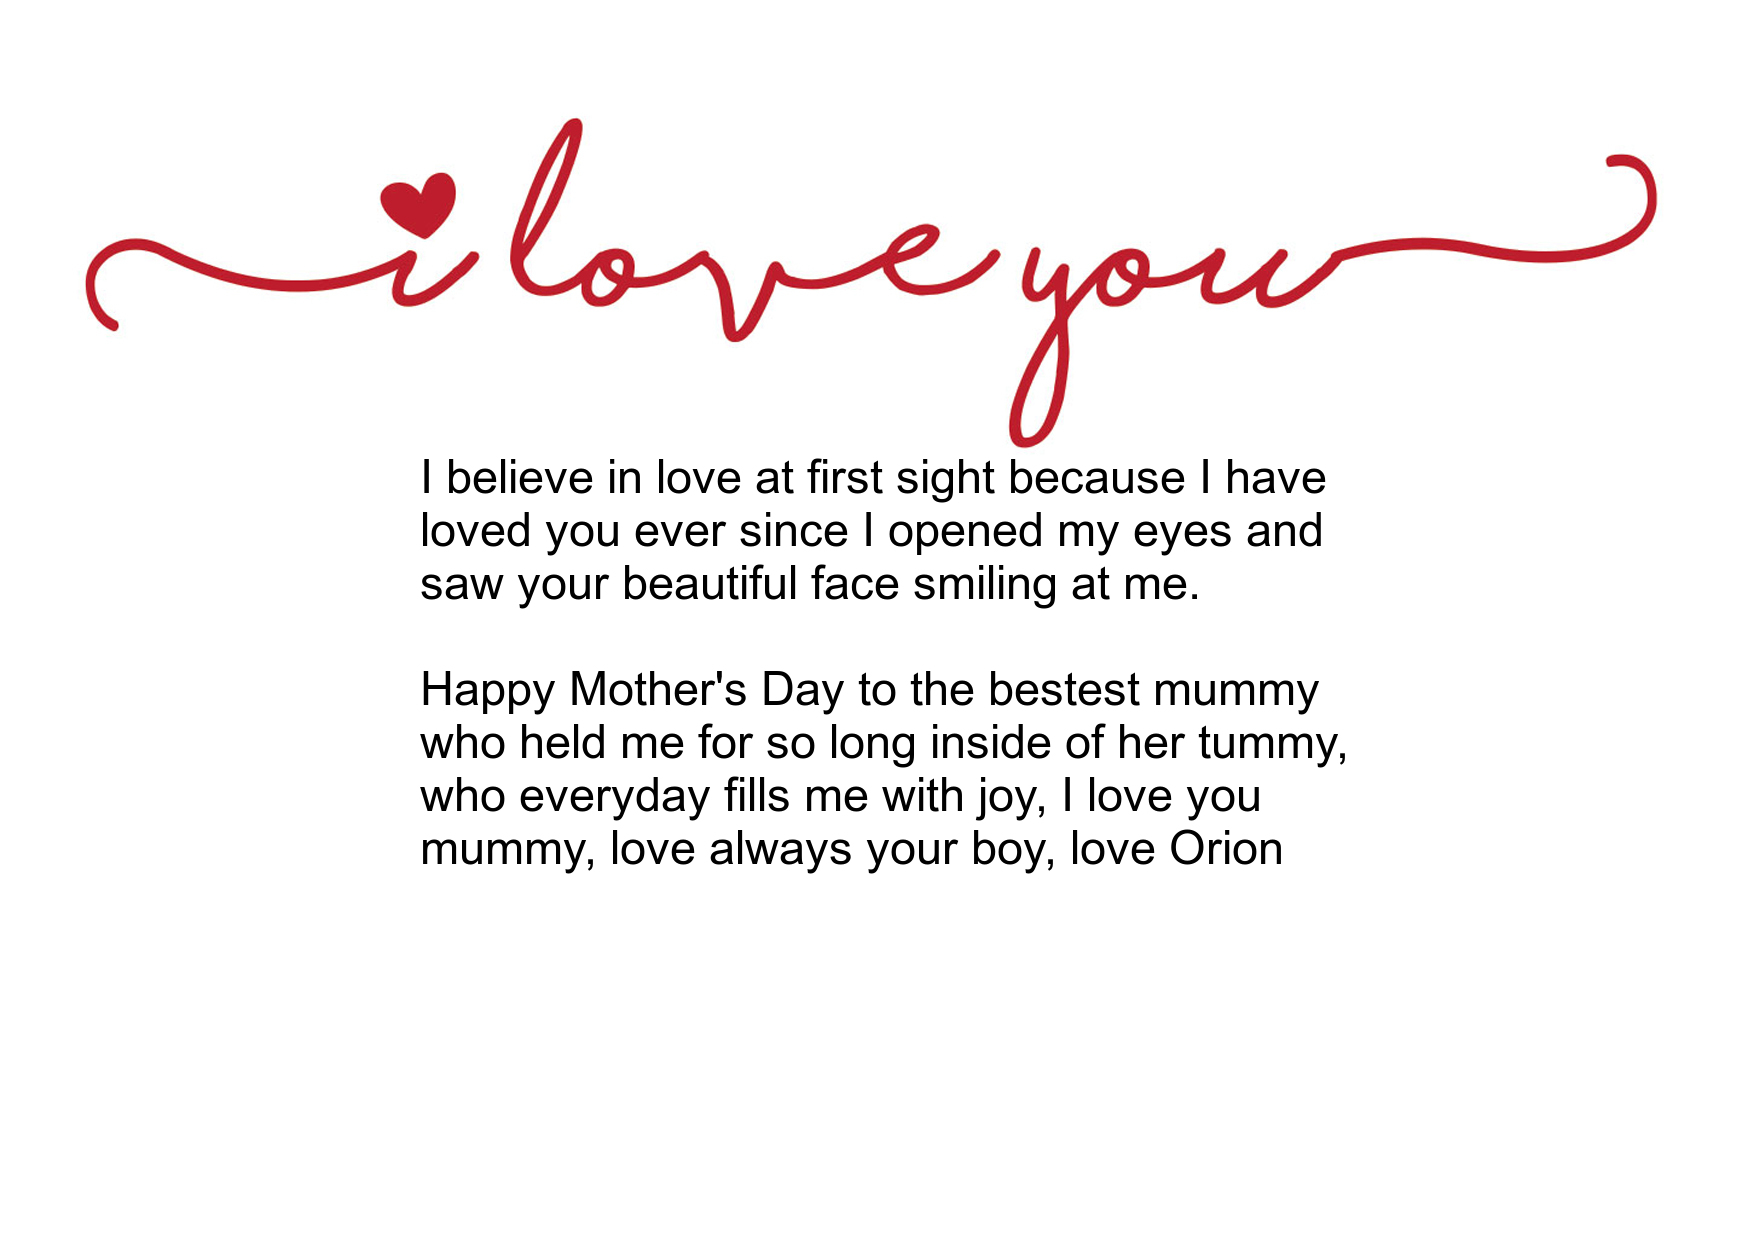 i love you
I believe in love at first sight because I have
loved you ever since I opened my eyes and
saw your beautiful face smiling at me.
Happy Mother's Day to the bestest mummy
who held me for so long inside of her tummy,
who everyday fills me with joy, I love you
mummy, love always your boy, love Orion